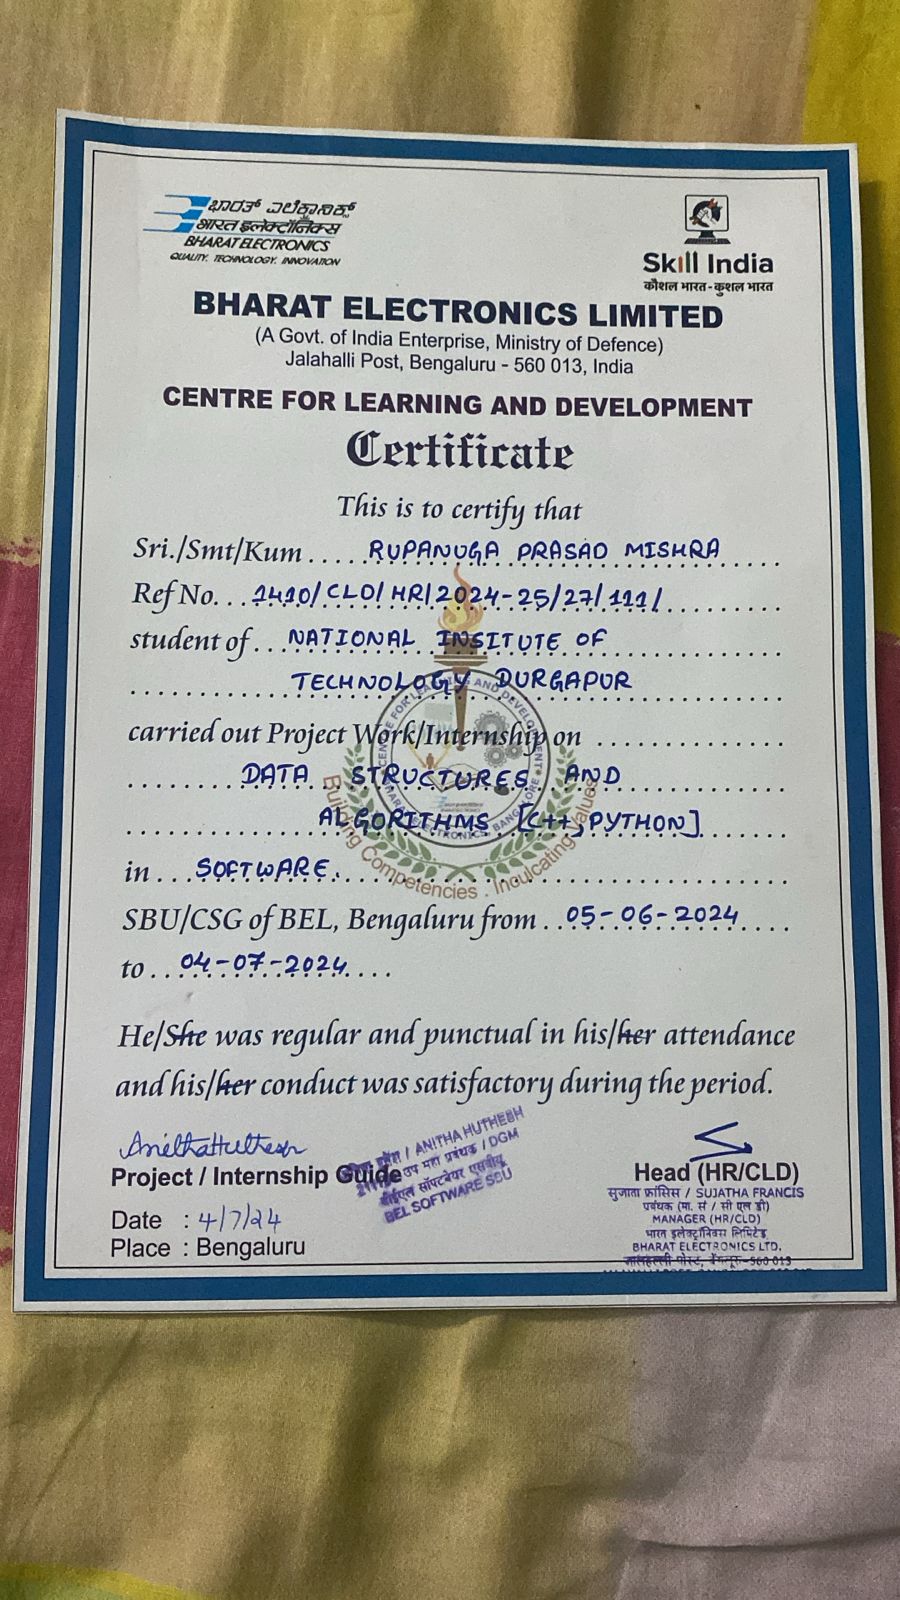 ಭಾರತ್ ಎಲೆಕ್ಟ್ರಾನಿಕ್ಸ್
भारत इलेक्ट्रॉनिक्स
BHARAT ELECTRONICS
QUALITY. TECHNOLOGY. INNOVATION
Skill India
कौशल भारत-कुशल भारत
BHARAT ELECTRONICS LIMITED
(A Govt. of India Enterprise, Ministry of Defence)
Jalahalli Post, Bengaluru - 560 013, India
CENTRE FOR LEARNING AND DEVELOPMENT
Certificate
This is to certify that
Sri./Smt/Kum .... RUPANUGA PRASAD MISHRA
Ref No... 1410/CLD/HR/2024-25/27/111/
student of ... NATIONAL INSITUTE OF
TECHNOLOGY DURGAPUR
carried out Project Work/Internship on
DATA STRUCTURES AND
ALGORITHMS [C++, PYTHON]
in ... SOFTWARE
SBU/CSG of BEL, Bengaluru from .. 05-06-2024
to .. 04-07-2024
CENTRE FOR LEARNING AND DEVELOPMENT
BHARAT ELECTRONICS, BANGALORE
Building Competencies . Inculcating Values
He/She was regular and punctual in his/her attendance
and his/her conduct was satisfactory during the period.
Anitha Huthesh
Project / Internship Guide
/ ANITHA HUTHESH
उप महा प्रबंधक / DGM
बीईएल सॉफ्टवेयर एसबीयू
BEL SOFTWARE SBU
Date : 4/7/24
Place : Bengaluru
Head (HR/CLD)
सुजाता फ्रांसिस / SUJATHA FRANCIS
प्रबंधक (मा. सं / सी एल डी)
MANAGER (HR/CLD)
भारत इलेक्ट्रॉनिक्स लिमिटेड
BHARAT ELECTRONICS LTD.
जालहल्ली पोस्ट, बेंगलूरु-560 013